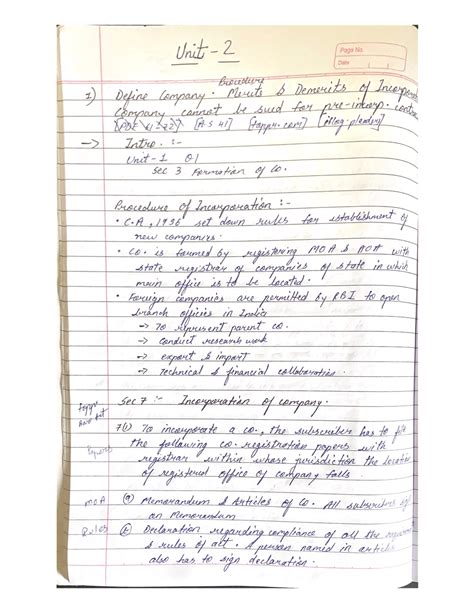 Unit - 2
Page No.
Date
Procedure
1) Define Company. Merits & Demerits of Incorporat
Company cannot be sued for pre-incorp. contra
→ Intro. :-
Unit-1 Q1
Sec 3 Formation of Co.
Procedure of Incorporation :-
• C.A, 1956 set down rules for establishment of
new companies.
• Co. is formed by registering MOA & AOA with
state registrar of companies of state in which
main office is to be located.
• Foreign companies are permitted by RBI to open
branch offices in India
→ To represent parent co.
→ Conduct research work
→ export & import
→ Technical & financial collaboration.
Sec 7 :- Incorporation of company.
7(1) To incorporate a co., the subscriber has to file
the following co. registration papers with
registrar within whose jurisdiction the location
of registered office of company falls.
MOA (a) Memorandum & Articles of Co. All subscribers of
on Memorandum
Rules (b) Declaration regarding compliance of all the
& rules of act. A person named in article
also has to sign declaration.